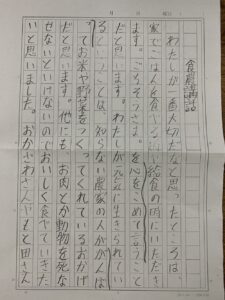 食農講話
わたしが一番大切だなと思ったところは、
家でごはんを食べる時や給食の時にいただき
ます。ごちそうさまを心をこめて言うこと
だと思います。わたしが元気に生きられてい
るということは、知らない農家の人ががんば
ってお米や野菜をつくってくれているおかげ
だと思います。他にも、お肉とか動物を死な
せないといけないのでおいしく食べていきた
いと思いました。おかざわさんやもと田さん